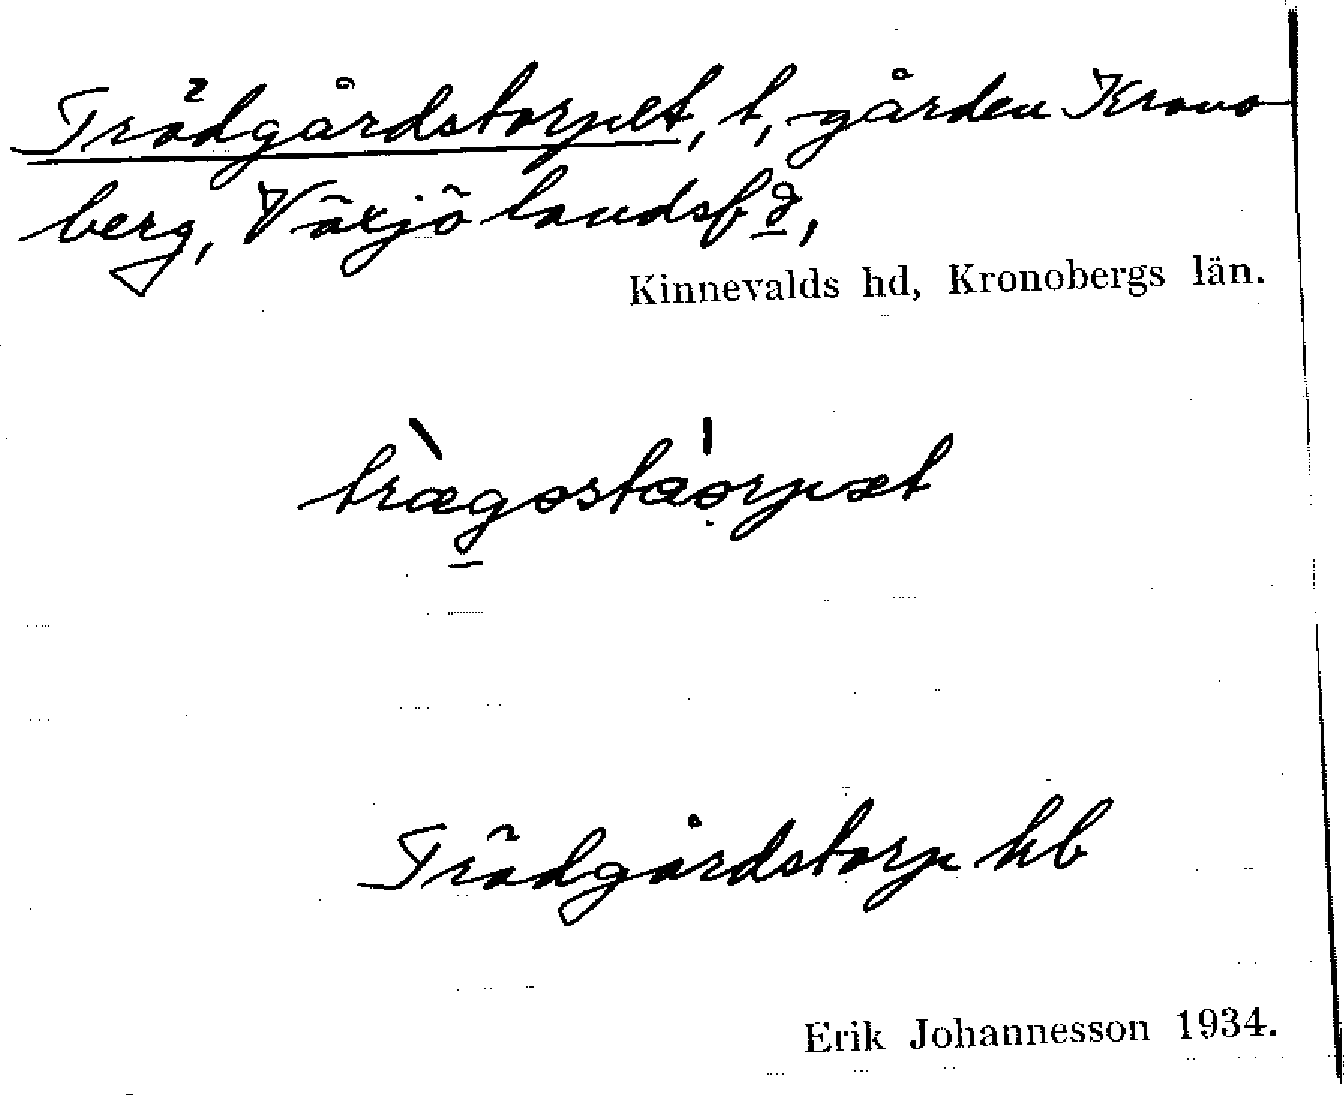 Trädgårdstorpet, t, gården Krono
berg, Växjö landsfd,
Kinnevalds hd, Kronobergs län.
Trädgårdstorp hb
Erik Johannesson 1934.